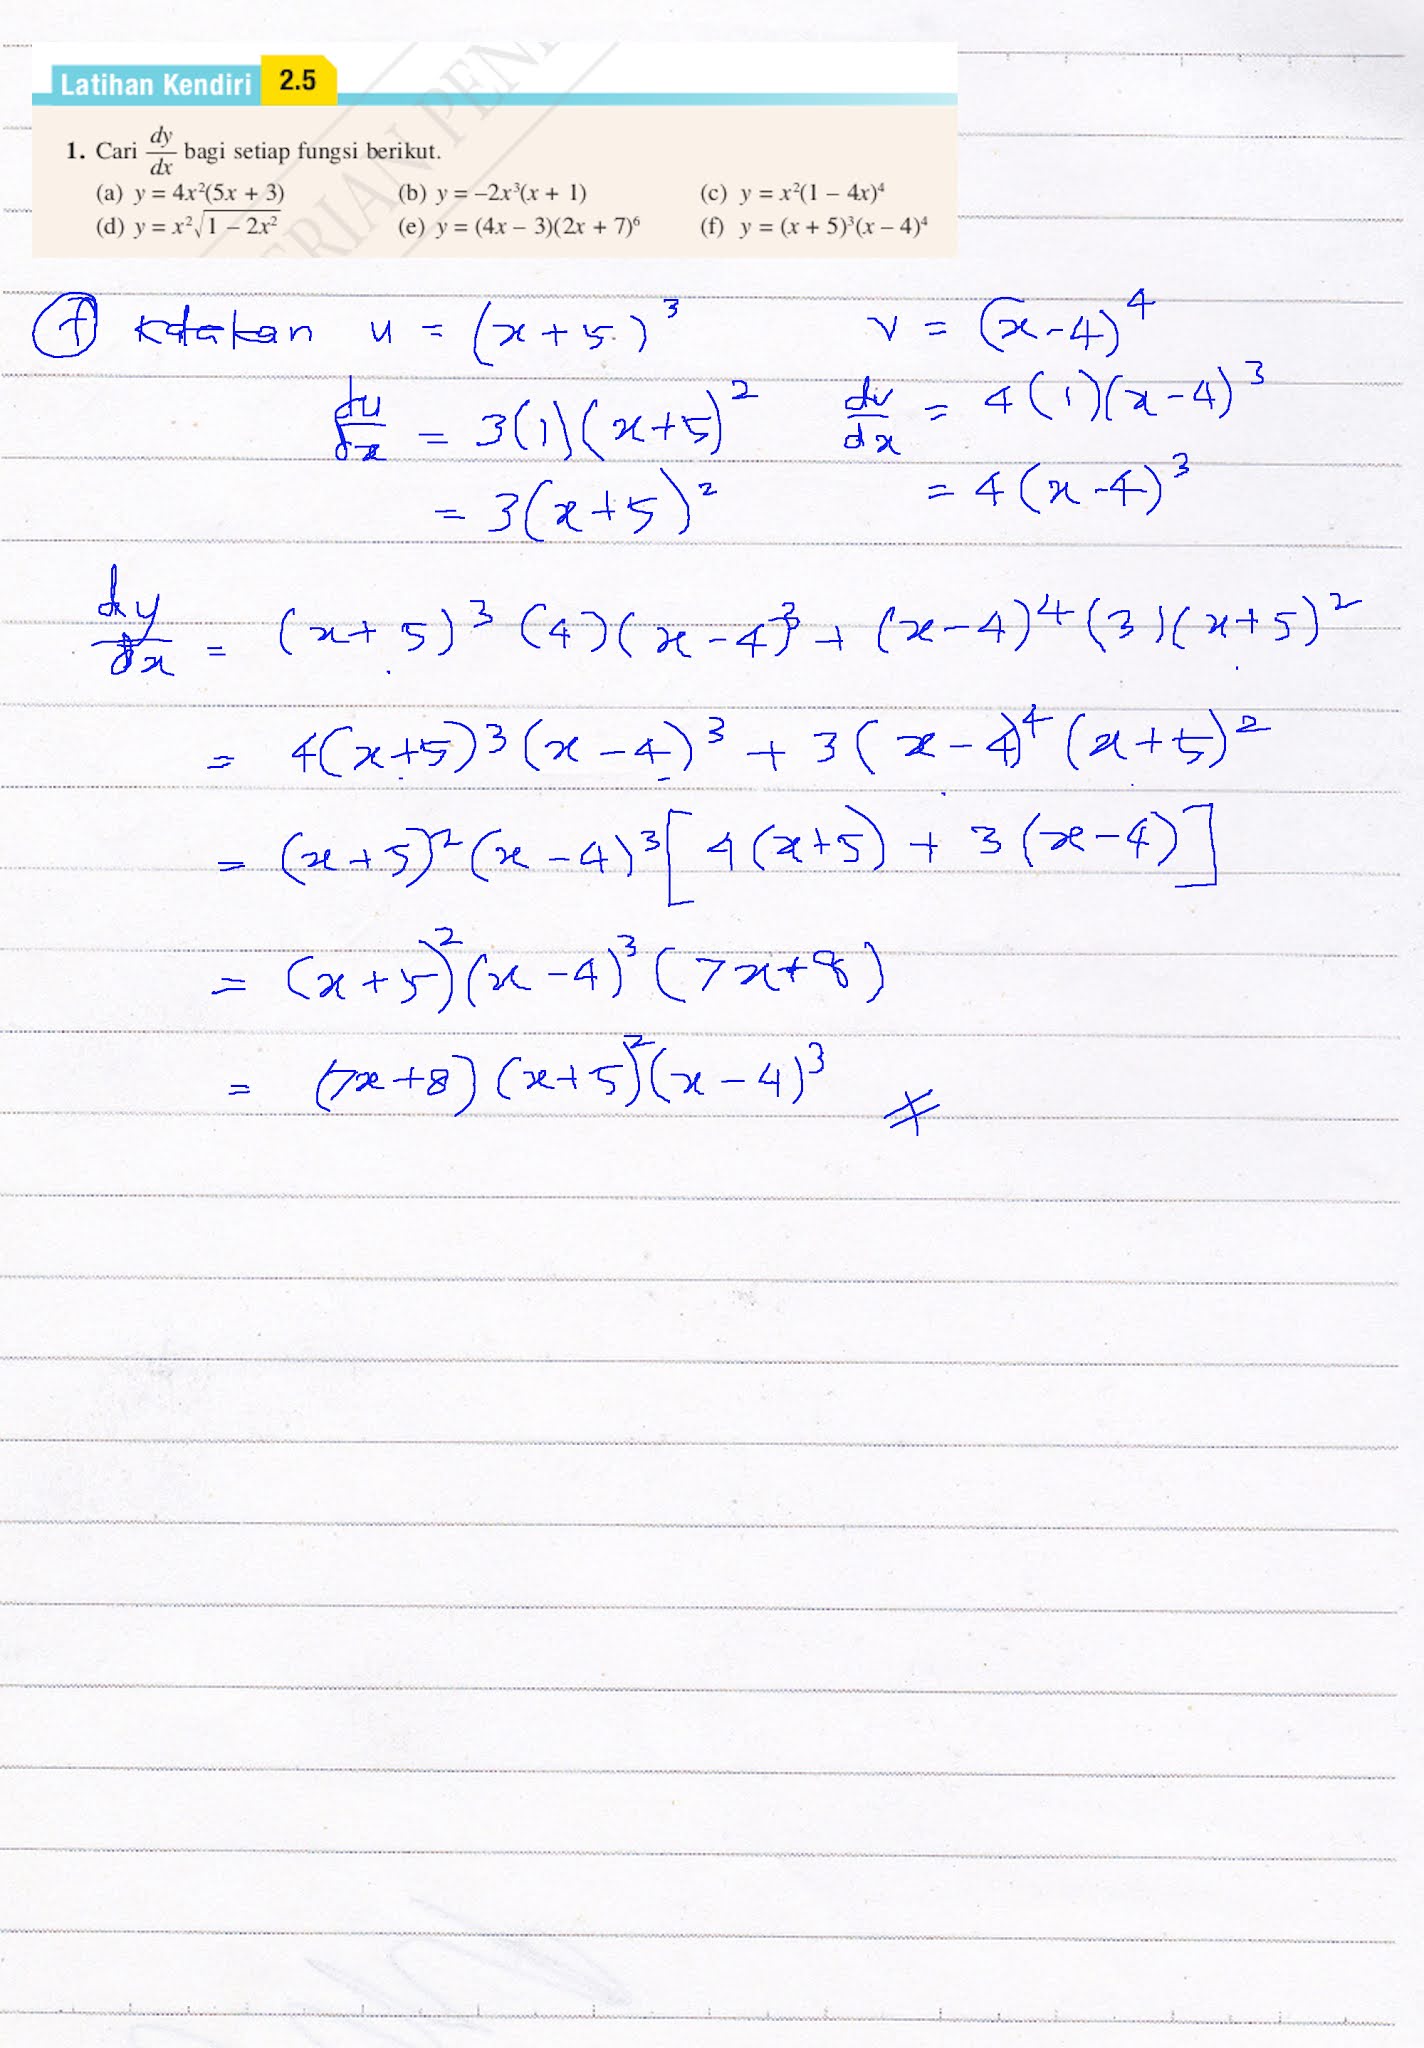 Latihan Kendiri 2.5
1. Cari dy/dx bagi setiap fungsi berikut.
(a) y = 4x²(5x + 3) (b) y = –2x³(x + 1) (c) y = x²(1 – 4x)⁴
(d) y = x²√(1 – 2x²) (e) y = (4x – 3)(2x + 7)⁶ (f) y = (x + 5)³(x – 4)⁴
(f) katakan u = (x+5)³ v = (x-4)⁴
du/dx = 3(1)(x+5)² dv/dx = 4(1)(x-4)³
= 3(x+5)² = 4(x-4)³
dy/dx = (x+5)³(4)(x-4)³ + (x-4)⁴(3)(x+5)²
= 4(x+5)³(x-4)³ + 3(x-4)⁴(x+5)²
= (x+5)²(x-4)³[4(x+5) + 3(x-4)]
= (x+5)²(x-4)³(7x+8)
= (7x+8)(x+5)²(x-4)³